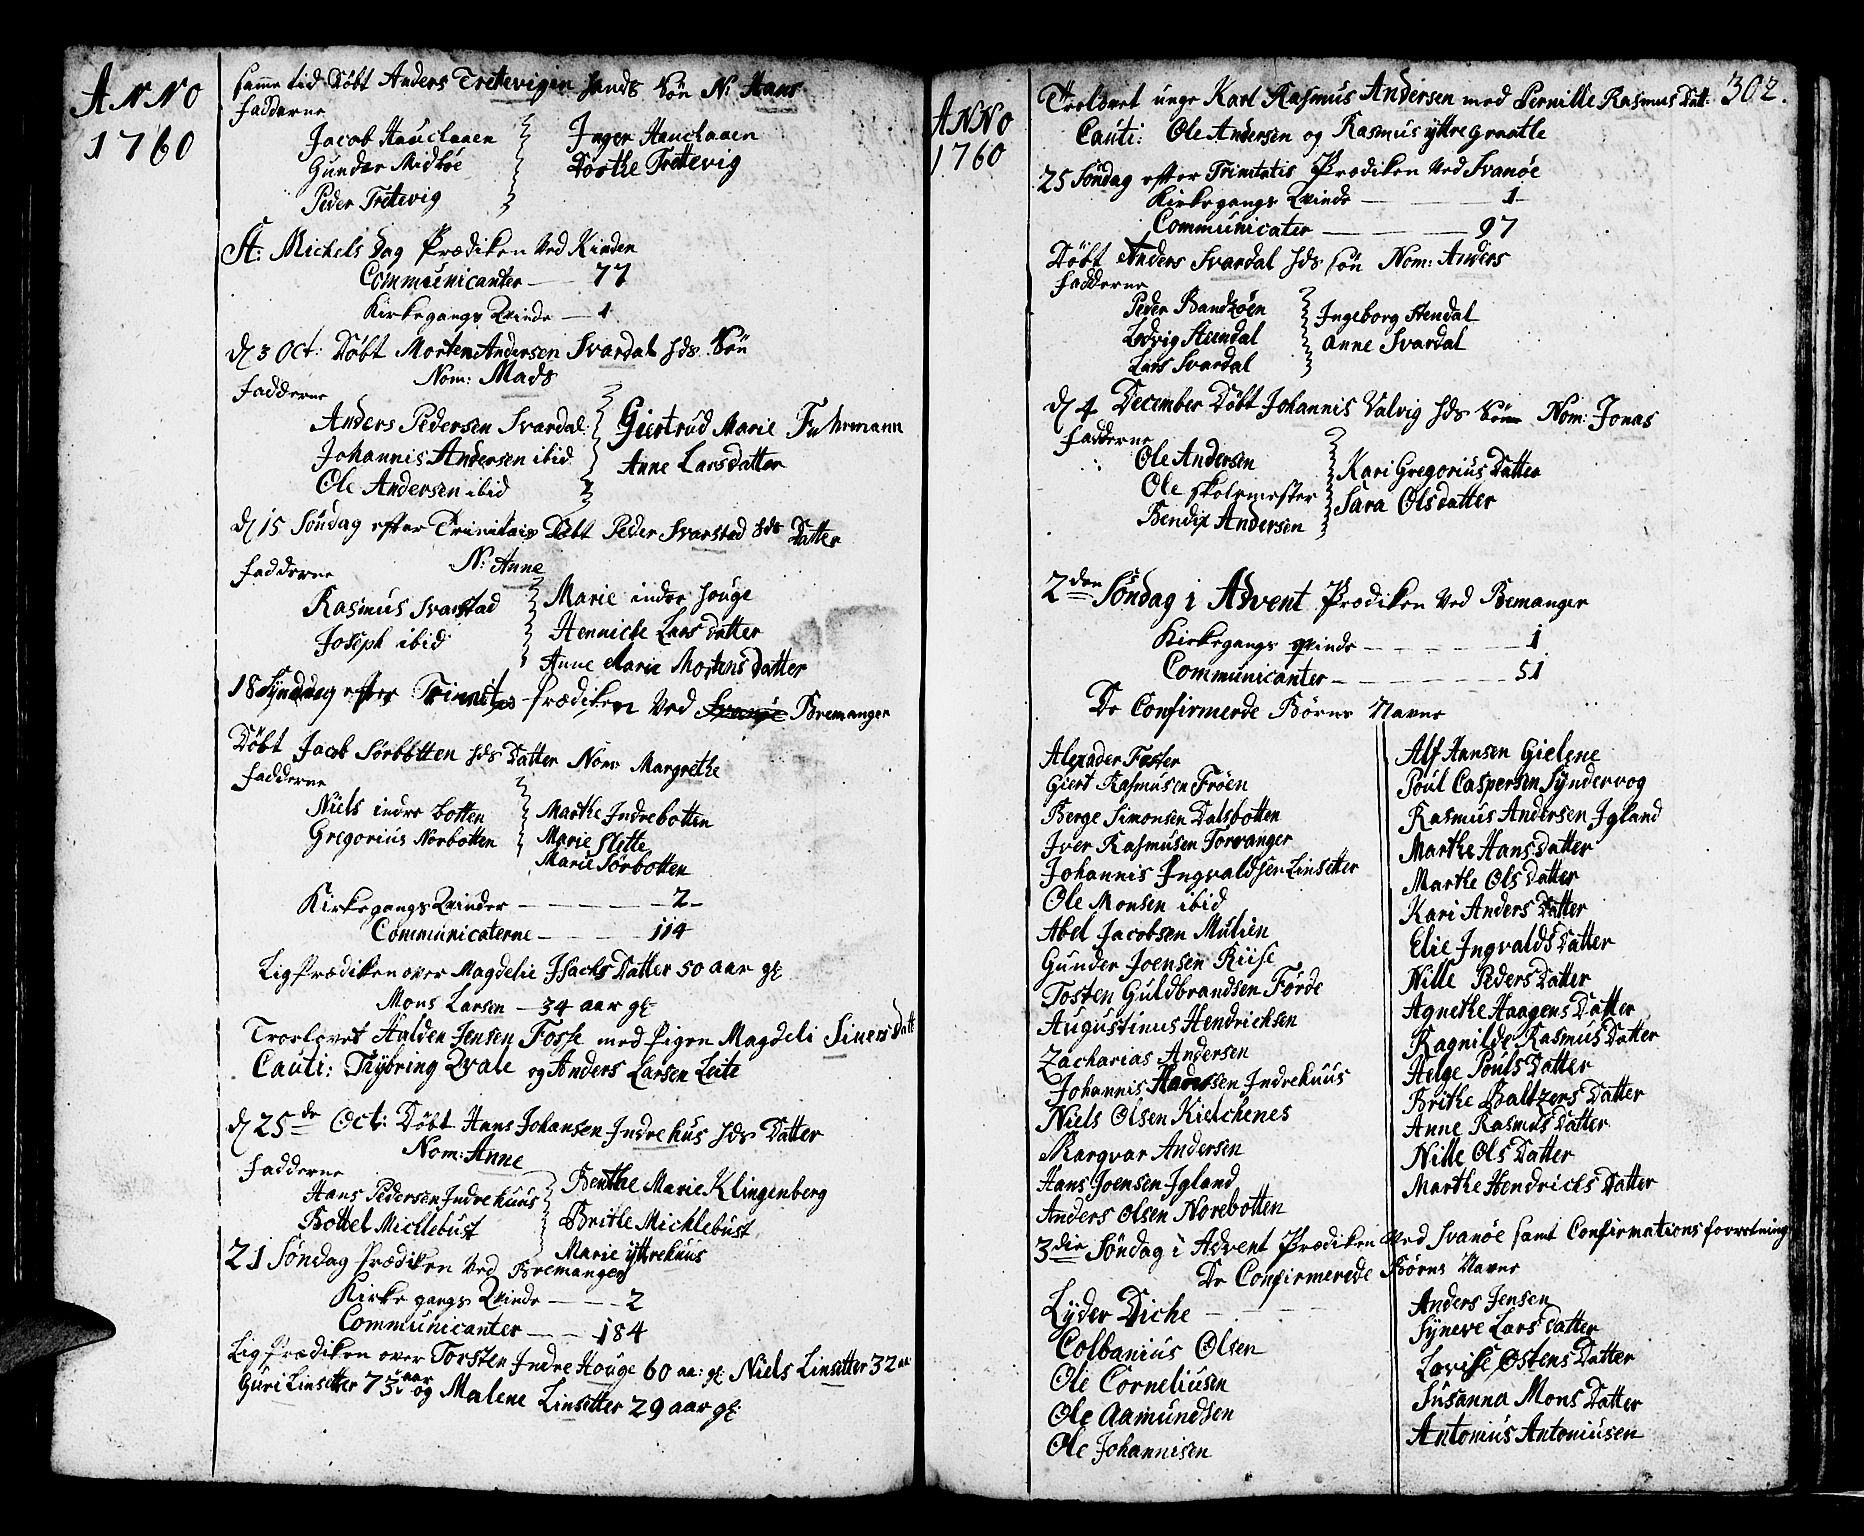 ANNO
1760
samme tid Døbt Anders Tretevigen hands Søn N: Hans
Fadderne
Jacob Hauclaaen
Gunder Midbøe
Peder Tretevig
Inger Hauclaaen
Dorthe Trettevig
St: Michels Dag Prædiken Ved Kinden
Communicanter — 77
Kirkegangs Qvinde — 1
d 3 Oct: Døbt Morten Andersen Svardal hds Søn
Nom: Mads
Fadderne
Anders Pedersen Svardal
Johannis Andersen ibid
Ole Andersen ibid
Giertrud Marie Fuhrmann
Anne Larsdatter
d 15 Søndag efter Trinitatis Døbt Peder Svarstad hds Datter
N: Anne
Fadderne
Rasmus Svarstad
Joseph ibid
Marie indre Houge
Hennicke Lars Datter
Anne Marie Mortens Datter
18 Syndag efter Trinitas Prædiken Ved Svanøe Bremanger
Døbt Jacob Sørbotten hds Datter Nom Margrethe
Fadderne
Niels indre botten
Gregorius Norbotten
Marthe Indrebotten
Marie Slette
Marie Sørbotten
Kirkegangs Qvinder — 2 —
Communicaterne — 114
Lig Prædiken over Magdelie Isachs Datter 50 aar gl
Mons Larsen — 34 aar gl
Trorlovet Halden Jensen Fosse med Pigen Magdeli Siversdatt
Cauti: Thybring Qvale og Anders Larsen Leite
d 25de Oct: Døbt Hans Johansen Indrehus hds Datter
Nom: Anne
Fadderne
Hans Pedersen Indrehuus
Bottel Micklebust
Benthe Marie Klingenberg
Brithe Micklebust
Marie yttrehuus
21 Søndag Prædiken Ved Bremanger
Kirkegangs Qvinde — 2
Communicanter — 184
Lig Prædiken over Torsten Indre Houge 60 aa: gl Niels Linsetter 32 aar
Guri Linsetter 73 aar og Malene Linsetter 29 aar gl
302.
ANNO
1760
Trolovet unge Karl Rasmus Andersen med Pernille Rasmus Datt.
Cauti: Ole Andersen og Rasmus yttre graatle
25 Søndag efter Trinitatis Prædiken Ved Svanøe
Kirkegangs Qvinde — 1
Communicater — 97
Døbt Anders Svardal hds Søn Nom: Anders
Fadderne
Peder Bandzøen
Lodvig Stendal
Lars Svardal
Ingeborg Stendal
Anne Svardal
d 4 December Døbt Johannis Valvig hds Søn Nom: Jonas
Fadderne
Ole Andersen
Ole Skolemester
Bendix Andersen
Kari Gregorius Datter
Sara Olsdatter
2den Søndag i Advent Prædiken Ved Bemanger
Kirkegangs qvinde — 1
Communicanter — 51
De Confirmerde Børns Navne
Alexader Foster
Giert Rasmusen Frøen
Berge Simonsen Dalsbotten
Iver Rasmusen Torvanger
Johannis Ingvaldsen Linsetter
Ole Monsen ibid
Abel Jacobsen Mulien
Gunder Joensen Riise
Tosten Guldbrandsen Førde
Augustinus Hendrichsen
Zacharias Andersen
Johannis Hansen Indrehuus
Niels Olsen Kielckenes
Margvar Andersen
Hans Joensen Igland
Anders Olsen Norebotten
Alf Hansen Gielene
Poul Caspersen Syndervog
Rasmus Andersen Igland
Marthe Hans Datter
Marthe Ols Datter
Kari Anders Datter
Elie Ingvalds Datter
Nille Peders Datter
Agnethe Haagens Datter
Ragnilde Rasmus Datter
Helge Pouls Datter
Brithe Baltzers Datter
Anne Rasmus Datter
Nille Ols Datter
Marthe Hendrichs Datter
3die Søndag i Advent Prædiken Ved Svanøe samt Confirmations forretning
De Confirmerede Børns Navne
Lyder Diche
Colbanius Olsen
Ole Corneliusen
Ole Aamundsen
Ole Johannisen
Anders Jensen
Syneve Lars Datter
Lovise Østens Datter
Susanna Mons Datter
Antonius Antoniusen